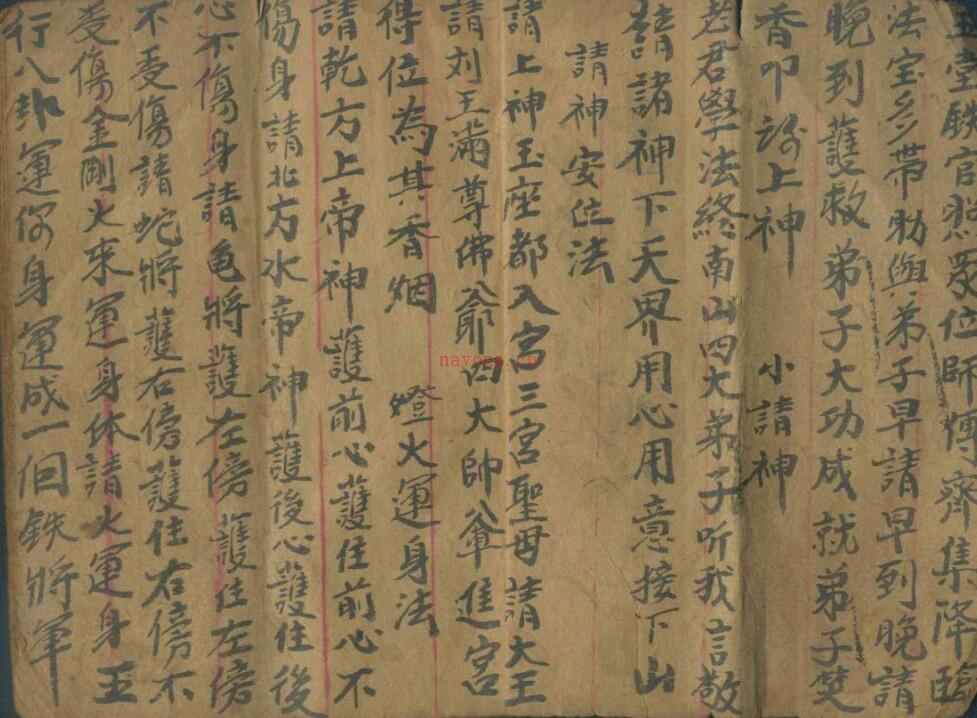 堂
官
眾位師傅齊集降臨
法宝多带
與弟子早請早到晚請
晚到護救弟子大功成就弟子焚
香叩
上神
小請神
老君學法終南山四大弟子听我言敬
請諸神下天界用心用意接下山
請神安位法
請上神玉座都入宫三宫聖母請大王
請刘王满尊佛爺四大帥爺進宫
得位為其香烟
燈火運身法
請乾方上帝神護前心護住前心不
傷身請北方水帝神護後心護住後
心不傷身請亀將護左傍護住左傍
不受傷請蛇將護右傍護住右傍不
受傷金剛火來運身体請火運身玉
行八卦運你身運成一個鉄將军
nayona.cn